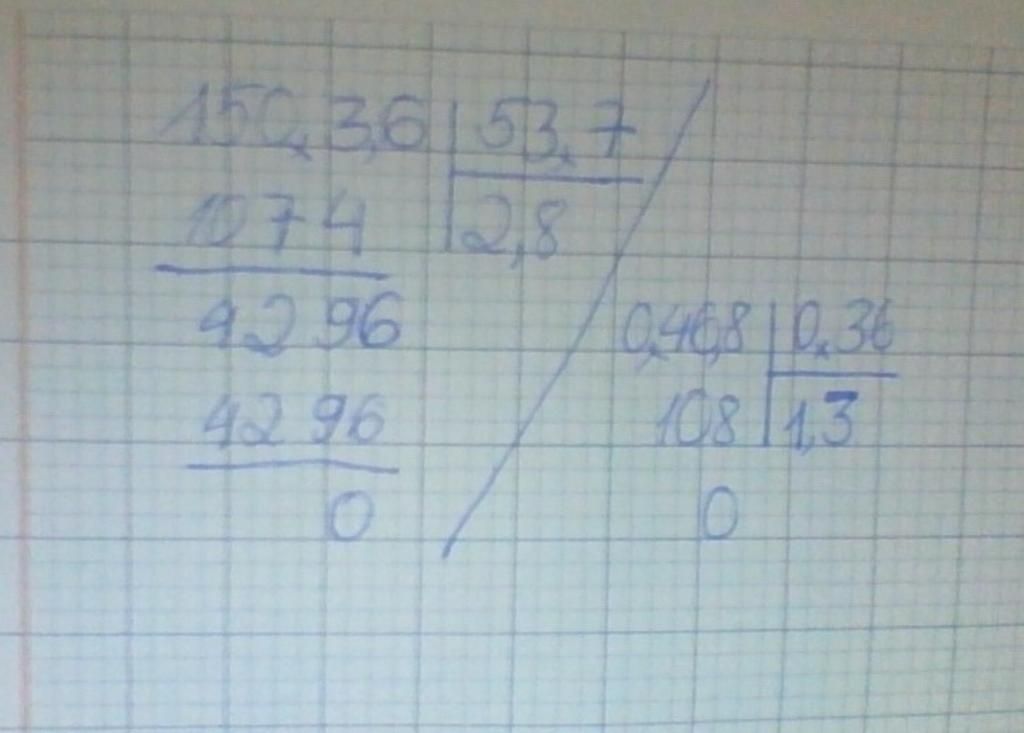 150,3,6 | 53,7
1074 | 2,8
4296
4296
0
0,46,8 | 0,36
108 | 1,3
0